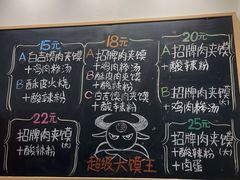 15元
A白吉馍肉夹馍
+鸡肉粉汤
B酥皮火烧
+酸辣粉
18元
A招牌肉夹馍
+鸡肉粉汤
B肉夹馍
+酸辣粉
C白吉馍肉夹馍
+酸辣粉
20元
A招牌肉夹馍
+酸辣粉
B招牌肉夹馍(大)
+鸡肉粉汤
22元
招牌肉夹馍
(大)
+酸辣粉
超级大馍王
25元
招牌肉夹馍
(大)
+酸辣粉
+卤蛋